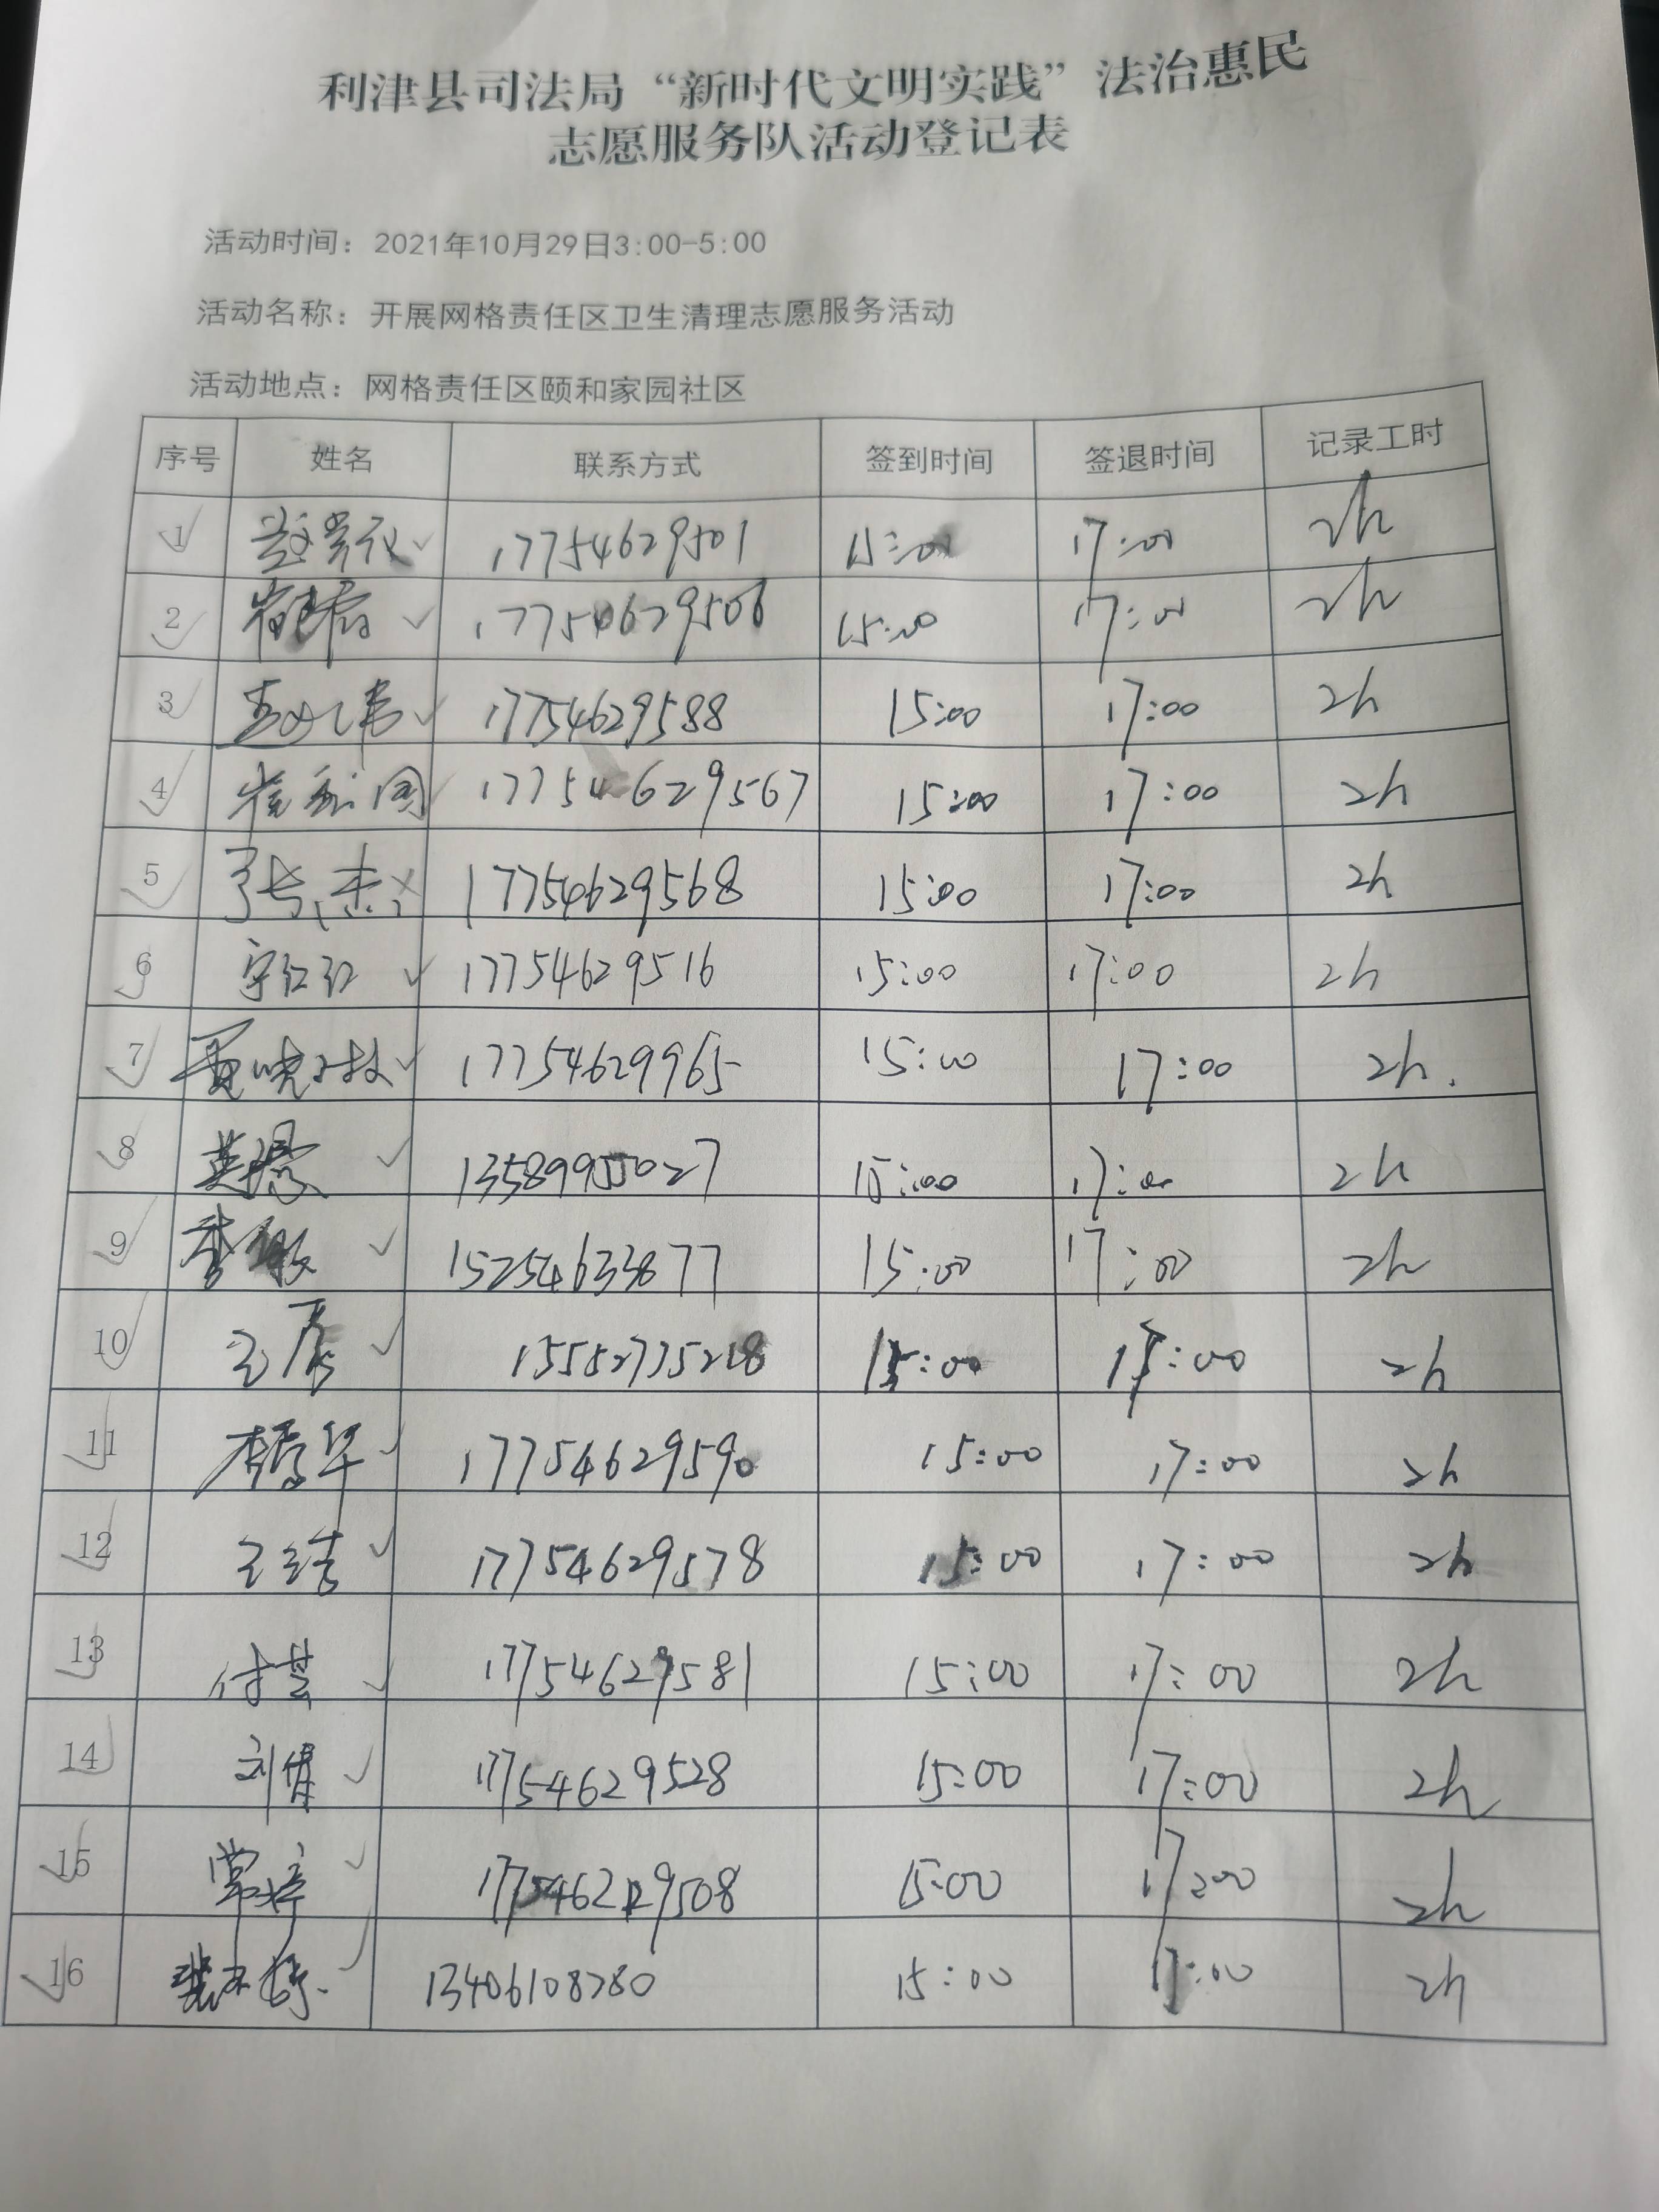 利津县司法局“新时代文明实践”法治惠民
志愿服务队活动登记表
活动时间：2021年10月29日3:00-5:00
活动名称：开展网格责任区卫生清理志愿服务活动
活动地点：网格责任区颐和家园社区
序号 姓名 联系方式 签到时间 签退时间 记录工时
1 17754629501 15:00 17:00 2h
2 17754629506 15:00 17:00 2h
3 17754629588 15:00 17:00 2h
4 17754629567 15:00 17:00 2h
5 17754629568 15:00 17:00 2h
6 17754629516 15:00 17:00 2h
7 17754629965 15:00 17:00 2h.
8 13589955027 15:00 17:00 2h
9 15254633877 15:00 17:00 2h
10 15:00 2h
11 17754629590 15:00 17:00 2h
12 17754629578 15:00 17:00 2h
13 17754629581 15:00 17:00 2h
14 刘健 17754629528 15:00 17:00 2h
15 常婷 17754629508 15:00 17:00 2h
16 13406108780 15:00 17:00 2h